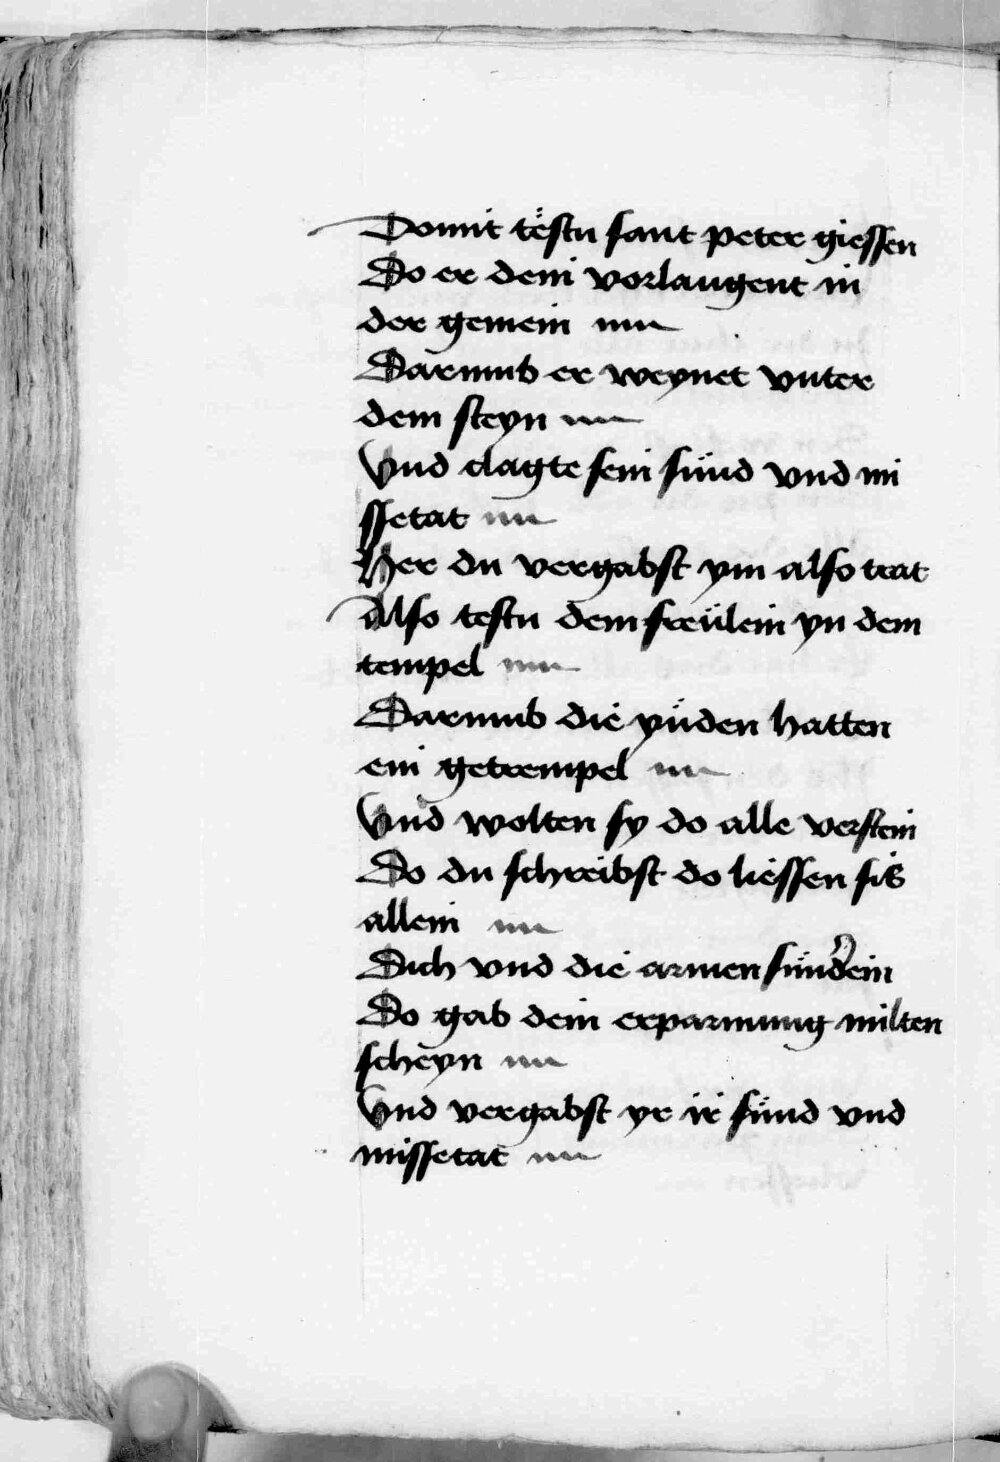 Domit tëstu sant peter giessen
Do er dein vorlaugent in
der gemein
Darumb er weynet vnter
dem steyn
Vnd clagte sein sünd vnd mi
ssetat
Her du vergabst ym also trat
Also testu dem freülein yn dem
tempel
Darumb die yüden hatten
ein getrempel
Vnd wolten sy do alle verstein
Do du schreibst do liessen sis
allein
Dich vnd die armen sünderin
Do gab dein erparmung milten
scheyn
Vnd vergabst yr ir sünd vnd
missetat